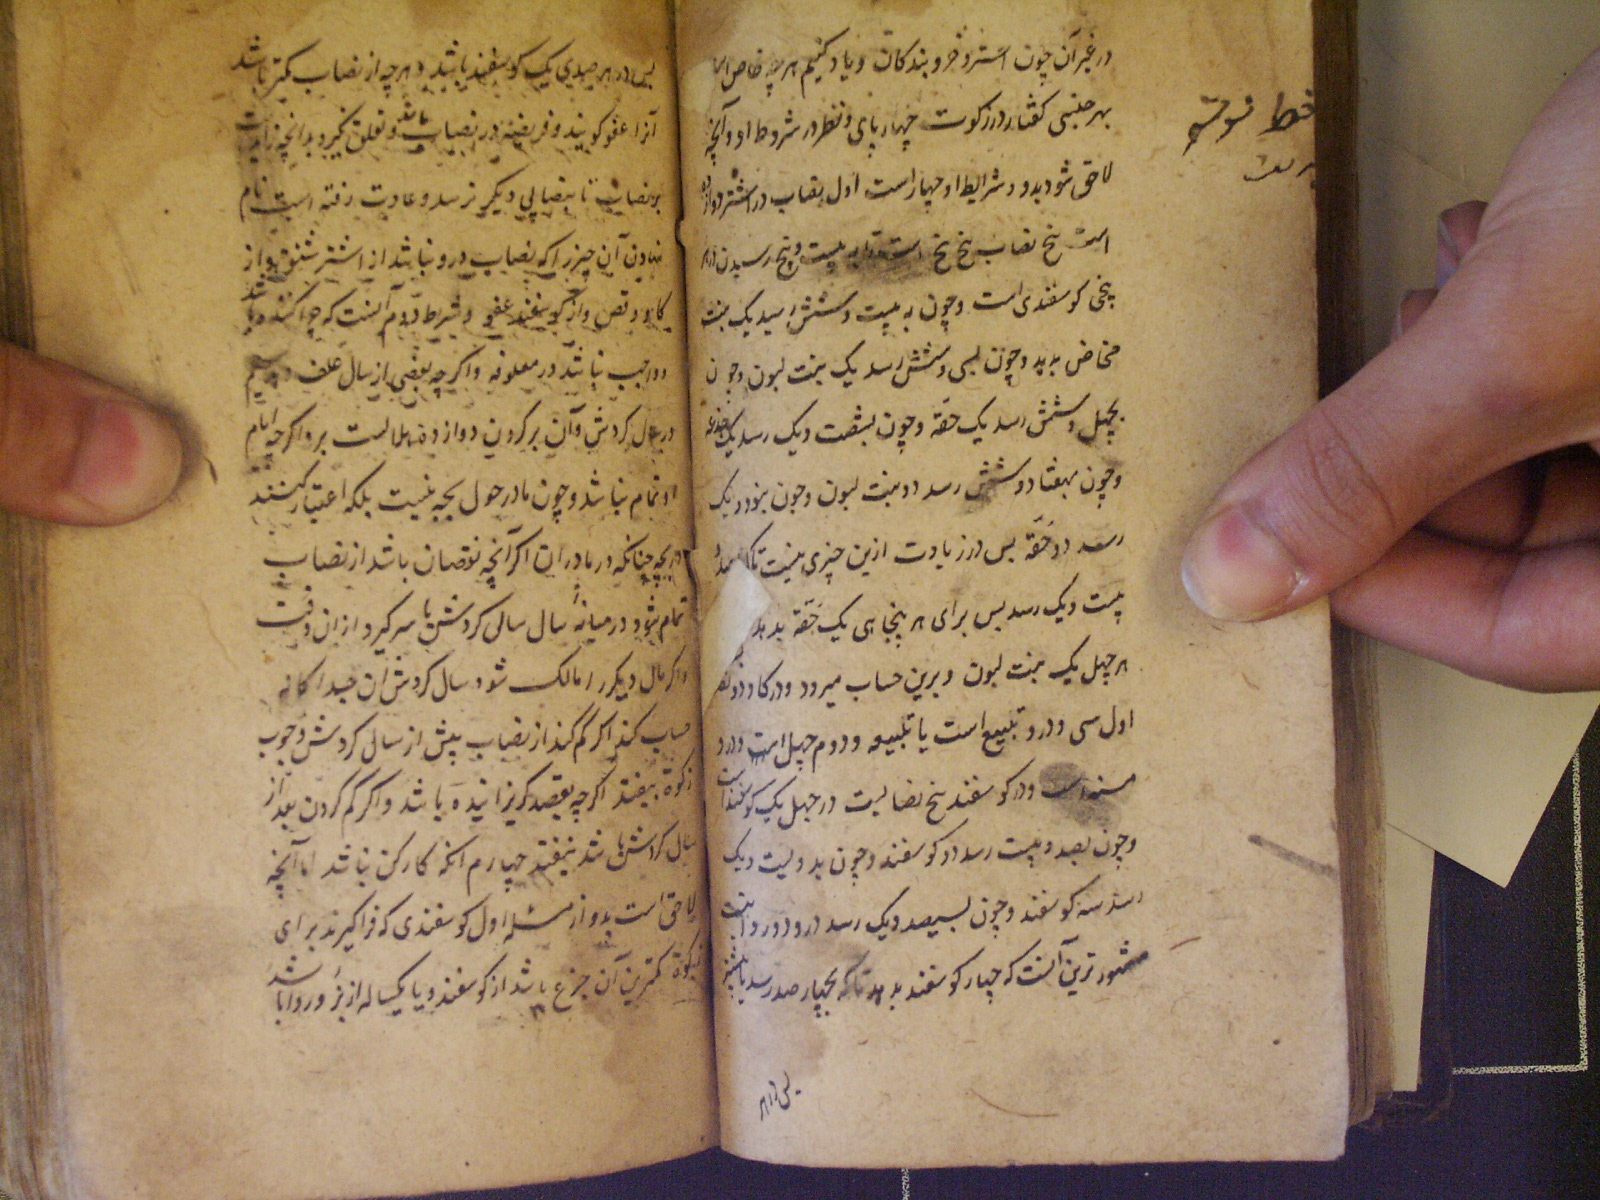 در غیر آن چون استر و خر و بندگان و یاد کنیم هر چه خاص است
بهر جنسی گفتار در زکوت چهارپای و نظر در شروط او و آنچه
لاحق شود بدو و شرایط او چهار است اول نصاب در اشتر دوازده
است پنج نصاب پنج پنج است تا به بیست و پنج رسیدن در هر
پنجی کوسفندی است و چون به بیست و شش رسید یک بنت
مخاض بدهد و چون بسی و شش رسد یک بنت لبون و چون
بچهل و شش رسد یک حقه و چون بشصت و یک رسد یک جذعه
و چون بهفتاد و شش رسد دو بنت لبون و چون بنود و یک
رسد دو حقه پس در زیادت ازین چیزی نیست تا که بصد و
بیست و یک رسد پس برای هر پنجاهی یک حقه بدهد
هر چهل یک بنت لبون و برین حساب میرود و در کاو دو
اول سی و درو تبیع است یا تبیعه و دوم چهل است و درو
مسنه است و در کوسفند پنج نصابست در چهل یک کوسفند است
و چون بصد و بیست رسد دو کوسفند و چون بدویست و یک
رسد سه کوسفند و چون بسیصد و یک رسد درو دو روایت
مشهورترین آنست که چهار کوسفند بدهد تا که بچهار صد رسد یا بیشتر
پس در هر
خط نوشته
پس در هر صدی یک کوسفند باشد و هر چه از نصاب کمتر باشد
آنرا عفو کویند و فریضه در نصاب باشد و تعلق نگیرد بدانچه زاید است
بر نصاب تا بنصابی دیگر نرسد و عادت رفته است بنام
نهادن آن چیز را که نصاب درو نباشد از اشتر شنق و از
کاو وقص و از کوسفند عفو و شرط دوم آنست که چرا کننده باشد
و واجب نباشد در معلوفه و اگر چه بعضی از سال علف دهد سیم
در سال کردش و آن بر کردن دوازده هلالست بر و اگر چه ایام
او تمام نباشد و چون مادر حول بچه نیست بلکه اعتبار کنند
در بچه چنانکه در مادران اگر آنچه نوقصان باشد از نصاب
تمام شود در میانهٔ سال سال کردش با سر کیرد از ان وقت
و اگر مال دیگر را مالک شود سال کردش آن جداگانه
حساب کند اگر کم کند از نصاب پیش از سال کردش وجوب
زکوة بیفتد اگر چه بقصد گریزانیده باشد و اگر کم کردن بعد از
سال کردش باشد نیفتد چهارم آنکه کارکن نباشد اما آنچه
لاحق است بدو از مسئله اول کوسفندی که فرا گیرند برای
زکوة کمترین آن جزع باشد از کوسفند و یا یکساله از بز و روا باشد